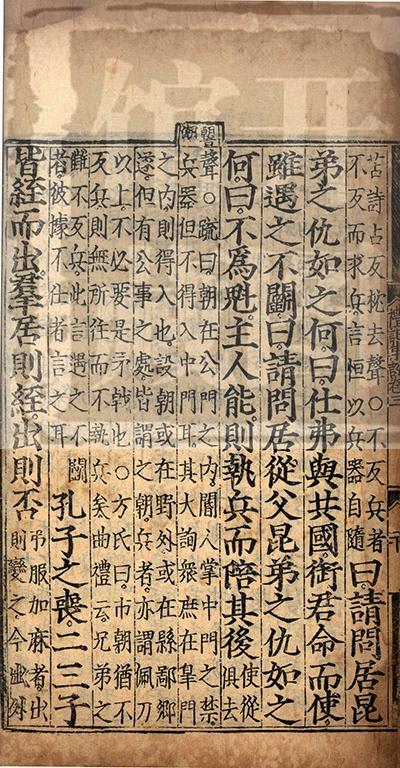 苫詩占反枕去聲○不反兵者
不反而求兵言恒以兵器自隨
曰請問居昆
弟之仇如之何曰仕弗與共國銜君命而使
雖遇之不鬭曰請問居從父昆弟之仇如之
何曰不爲魁主人能則執兵而陪其後
使從
俱去
聲○疏曰朝在公門之內閽人掌中門之禁
兵器但不得入中門耳其大詢衆庶在臯門
之內則得入也設朝或在野外或在縣鄙鄉
遂但有公事之處皆謂之朝兵者亦謂佩刀
以上不必要是矛戟也○方氏曰市朝猶不
反兵則無所往而不執兵矣曲禮云兄弟之
讎不反兵此言遇之不鬭
者彼據不仕者言之耳
孔子之喪二三子
皆絰而出羣居則絰出則否
弔服加麻者出
則變之今出外